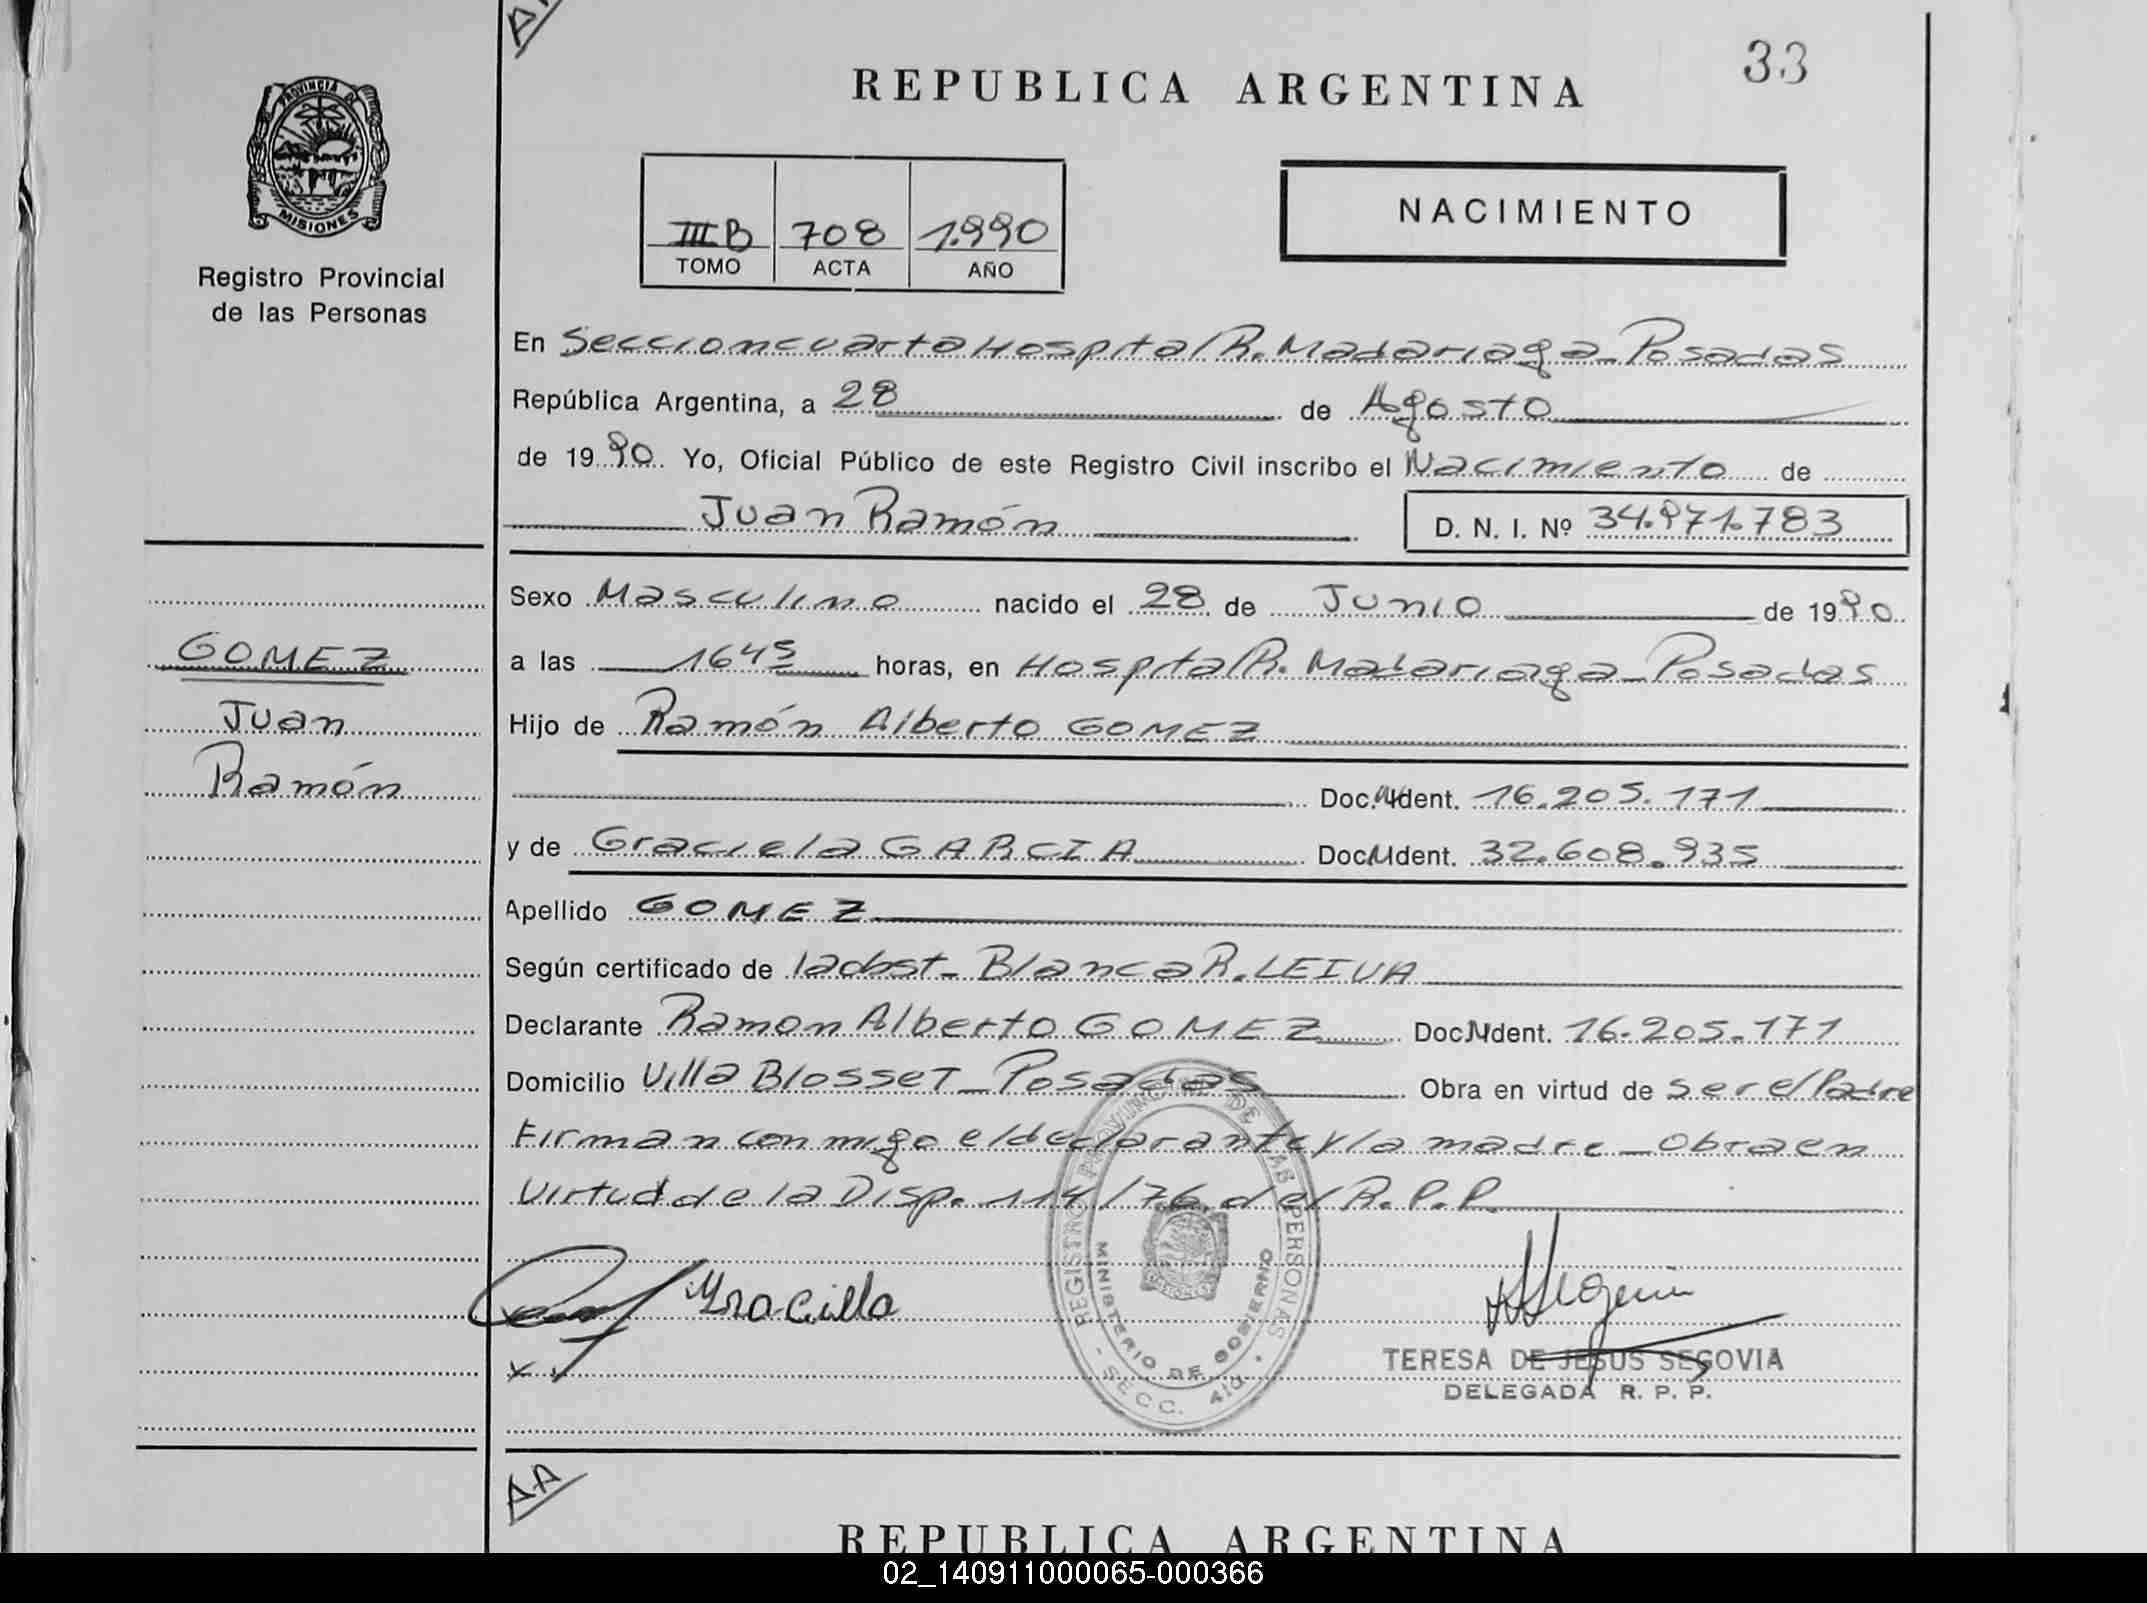 33
REPUBLICA ARGENTINA
PROVINCIA DE
MISIONES
Registro Provincial
de las Personas
III B 708 1.990
TOMO ACTA AÑO
NACIMIENTO
En Sección cuarta Hospital R. Madariaga - Posadas
República Argentina, a 28 de Agosto
de 1990. Yo, Oficial Público de este Registro Civil inscribo el Nacimiento de
Juan Ramón D. N. I. Nº 34.971.783
Sexo Masculino nacido el 28 de Junio de 1990
GOMEZ
Juan
Ramón
a las 16 45 horas, en Hospital R. Madariaga - Posadas
Hijo de Ramón Alberto GOMEZ
Doc. Ident. 16.205.171
y de Graciela GARCIA Doc. Ident. 32.608.935
Apellido GOMEZ
Según certificado de la obst - Blanca R. LEIVA
Declarante Ramon Alberto GOMEZ Doc. Ident. 16.205.171
Domicilio Villa Blosset - Posadas Obra en virtud de ser el Padre
Firman conmigo el declarante y la madre - Obra en
Virtud de la Disp. 114/76 del R.P.P.
REGISTRO PROVINCIAL DE LAS PERSONAS
MINISTERIO DE GOBIERNO
SECC. 4ta.
TERESA DE JESUS SEGOVIA
DELEGADA R. P. P.
AA
REPUBLICA ARGENTINA
02_140911000065-000366